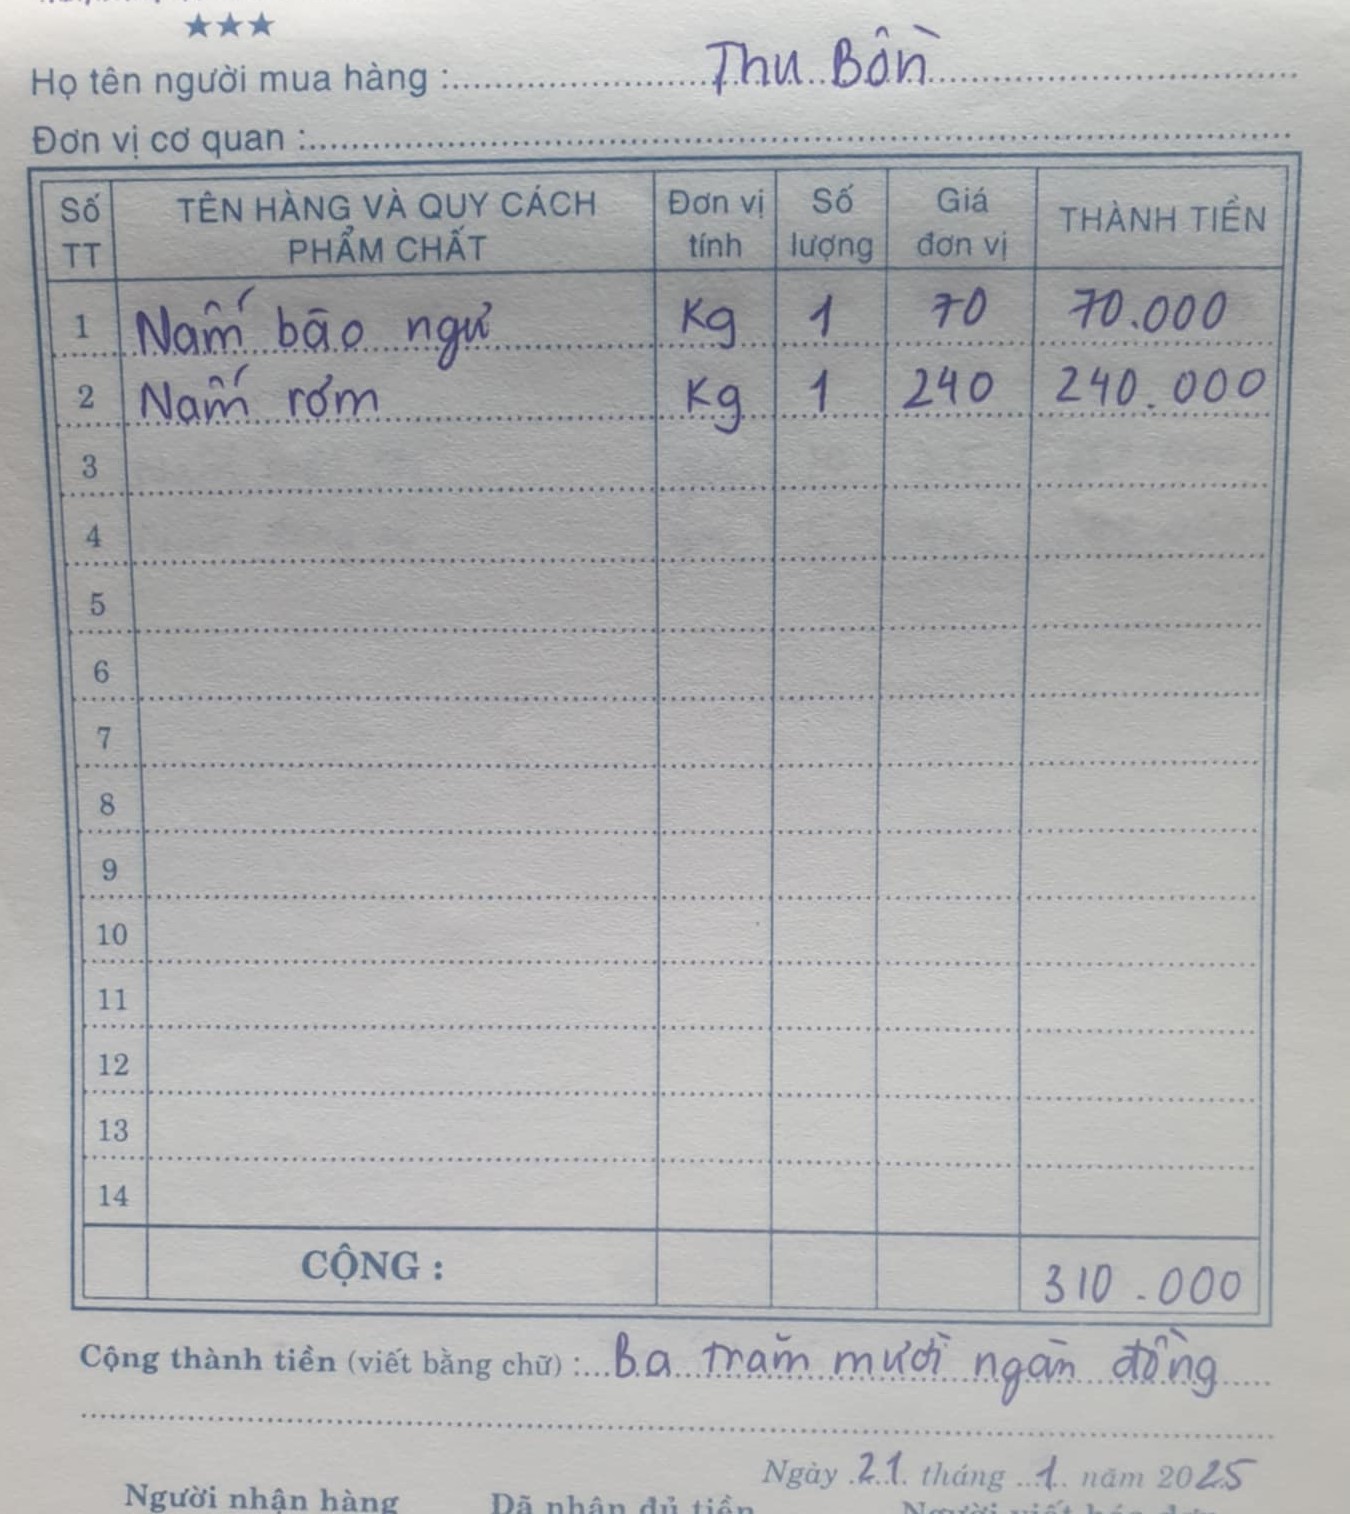 ★★★
Họ tên người mua hàng : Thu Bồn
Đơn vị cơ quan :
Số TT TÊN HÀNG VÀ QUY CÁCH PHẨM CHẤT Đơn vị tính Số lượng Giá đơn vị THÀNH TIỀN
1 Nấm bão ngư Kg 1 70 70.000
2 Nấm rơm Kg 1 240 240.000
3
4
5
6
7
8
9
10
11
12
13
14
CỘNG : 310.000
Cộng thành tiền (viết bằng chữ) : Ba trăm mười ngàn đồng
Ngày 21 tháng 1 năm 2025
Người nhận hàng Đã nhận đủ tiền Người viết hóa đơn